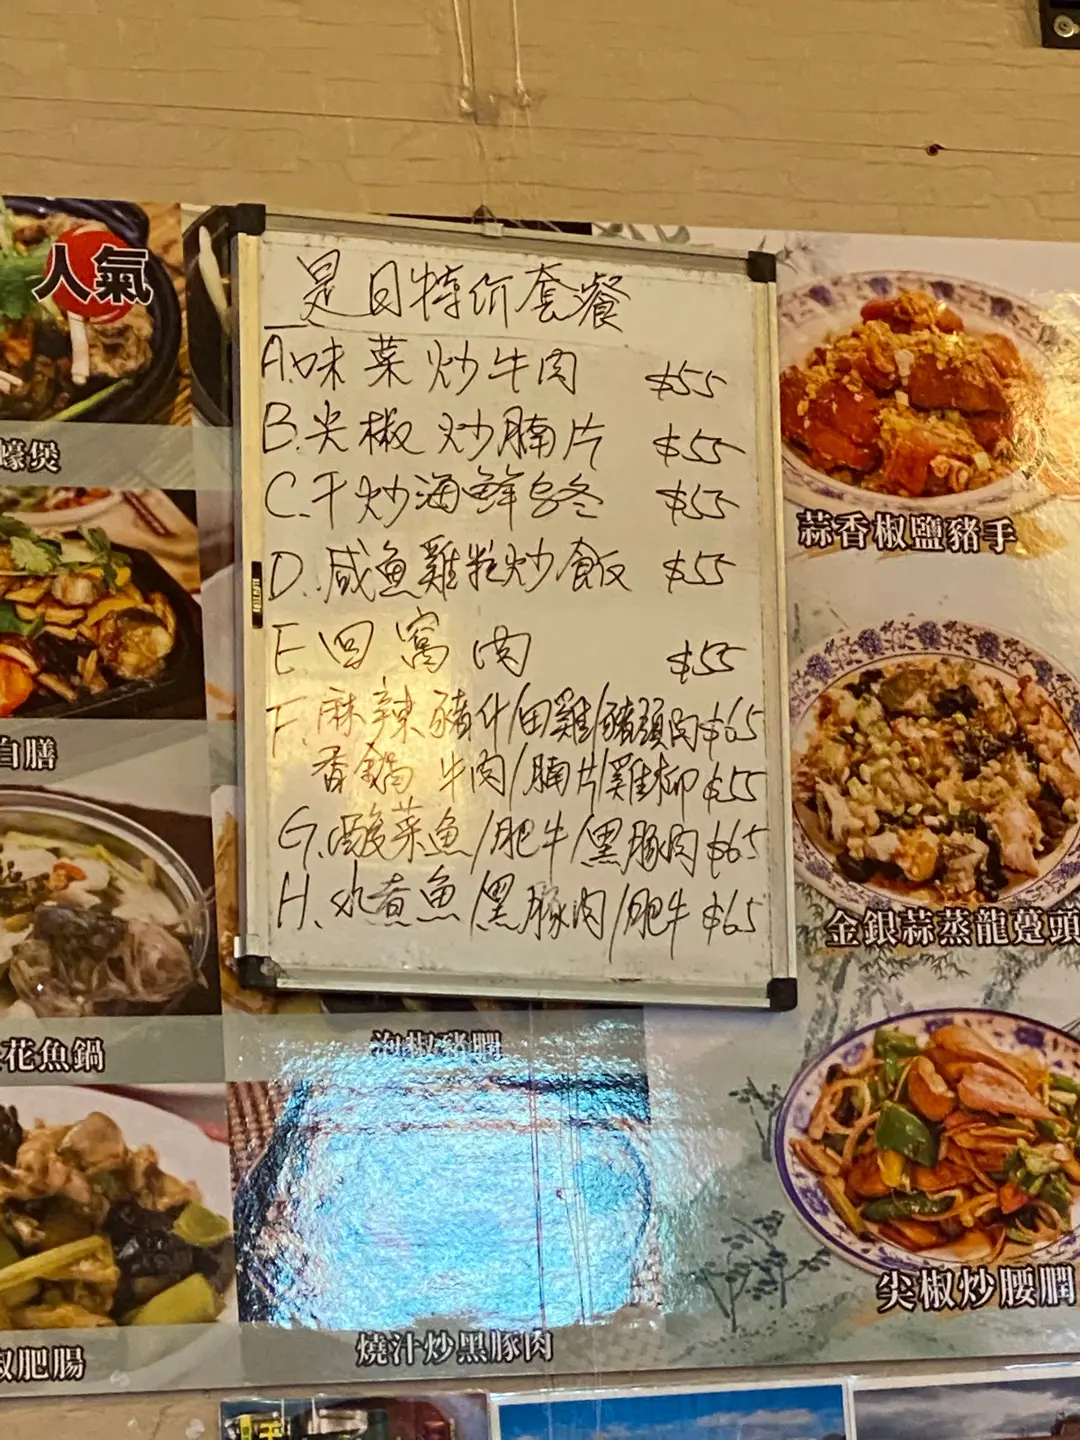 人氣
是日特价套餐
A.味菜炒牛肉 $55
B.尖椒炒腩片 $55
C.干炒海鮮乌冬 $55
D.咸魚雞粒炒飯 $55
E回窩肉 $55
F.麻辣豬什/田雞/豬頭肉$65
香鍋 牛肉/腩片/雞柳$55
G.酸菜魚/肥牛/黑豚肉$65
H.水煮魚/黑豚肉/肥牛$65
蠔煲
蒜香椒鹽豬手
白膳
金銀蒜蒸龍躉頭
花魚鍋
泡椒豬膶
尖椒炒腰膶
椒肥腸
燒汁炒黑豚肉